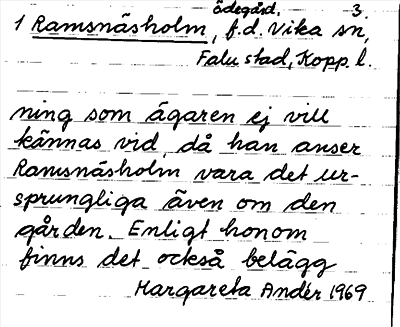 ödegård. 3.
1 Ramsnäsholm, f.d. Vika sn,
Falu stad, Kopp. l.
ning som ägaren ej vill
kännas vid, då han anser
Ramsnäsholm vara det ur-
sprungliga även om den
gården. Enligt honom
finns det också belägg
Margareta Andér 1969